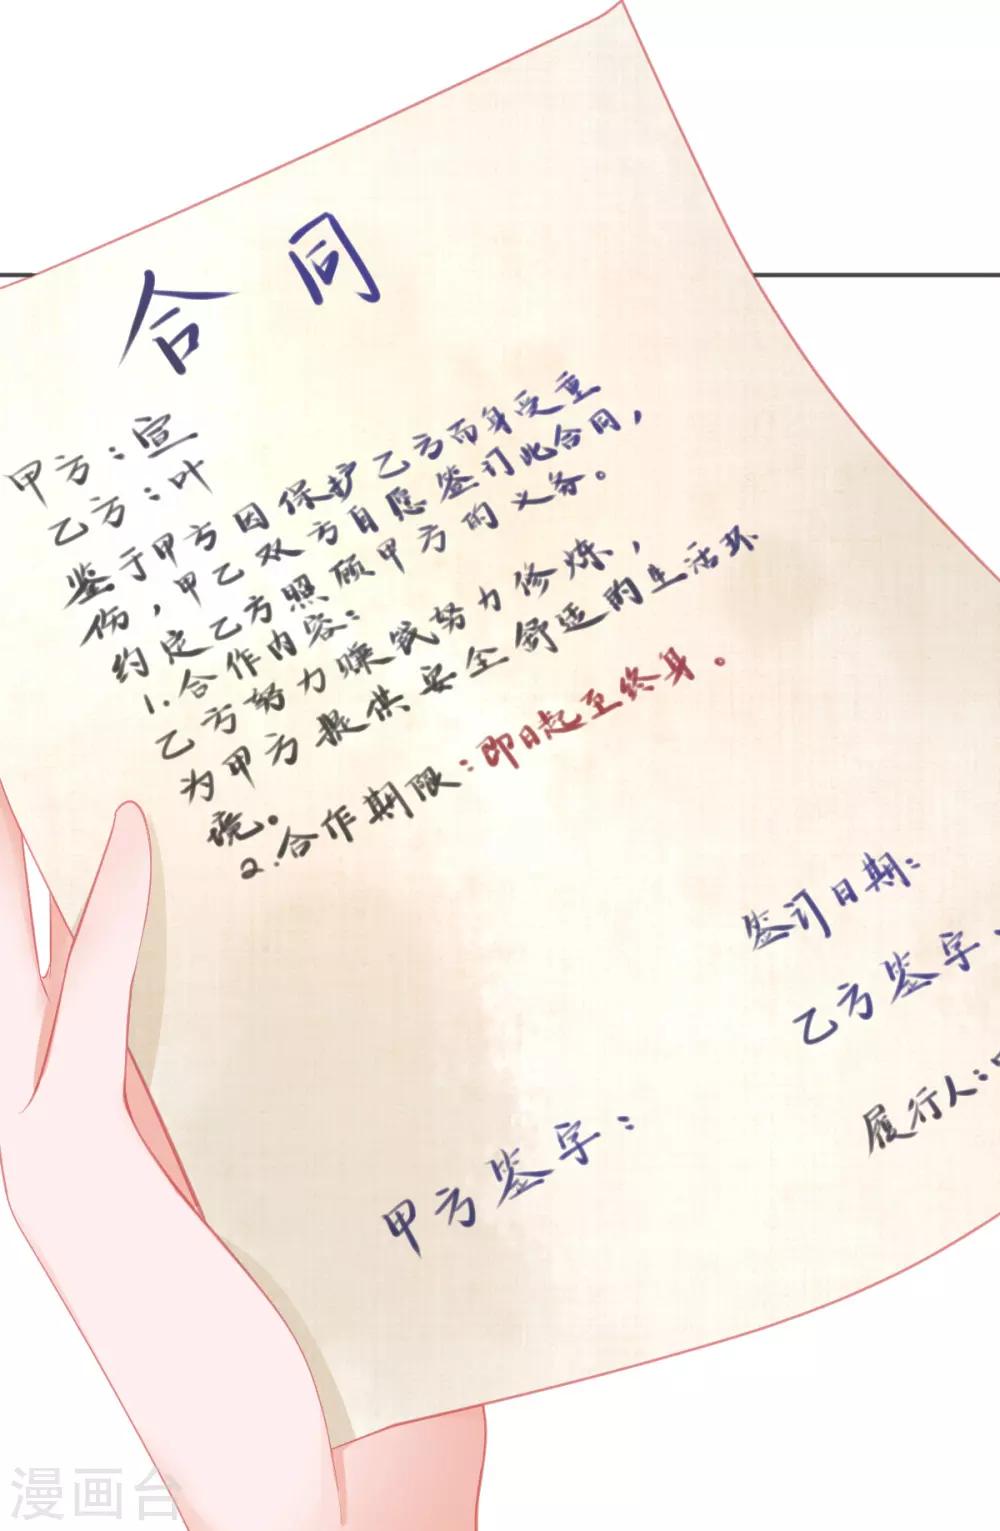 合同
甲方：宣
乙方：叶
鉴于甲方因保护乙方而身受重
伤，甲乙双方自愿签订此合同，
约定乙方照顾甲方的义务。
1.合作内容：
乙方努力赚钱努力修炼，
为甲方提供安全舒适的生活环
境。
2.合作期限：即日起至终身。
签订日期：
乙方签字：
履行人：
甲方签字：
漫画台